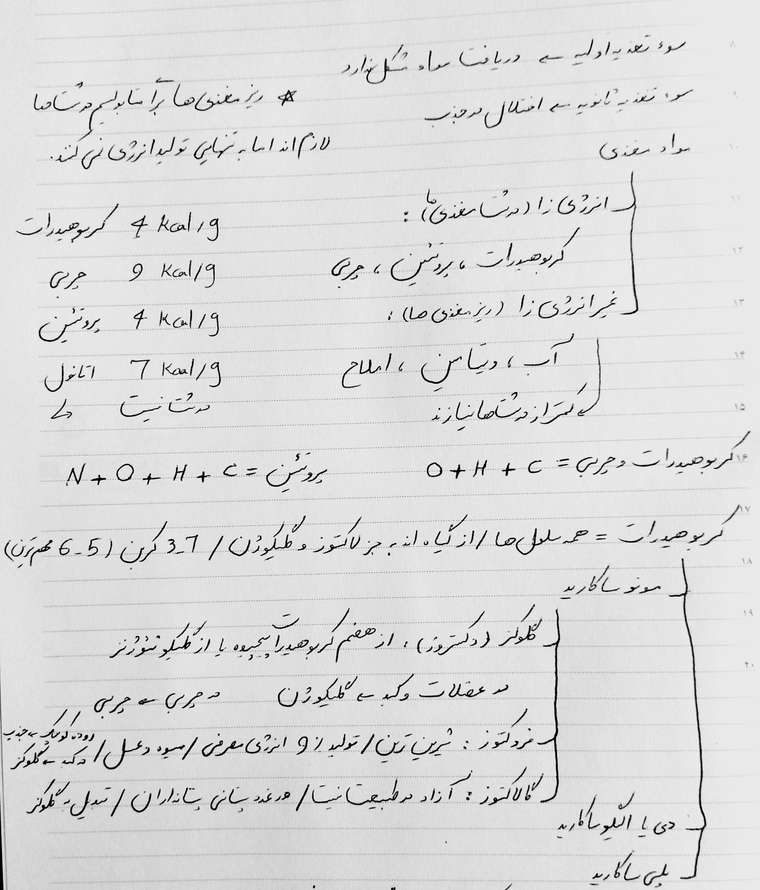 سوء تغذیه اولیه ← دریافت مواد مشکل ندارد
سوء تغذیه ثانویه ← اختلال در جذب
* ریز مغذی ها برای متابولیسم درشت ها
لازم اند اما به تنهایی تولید انرژی نمی کنند.
مواد مغذی
انرژی زا (درشت مغذی ها):
کربوهیدرات، پروتئین، چربی
غیر انرژی زا (ریز مغذی ها):
آب، ویتامین، املاح
کمتر از درشت ها نیازند
کربوهیدرات 4 Kcal/g
چربی 9 Kcal/g
پروتئین 4 Kcal/g
اتانول 7 Kcal/g
درشت نیست
کربوهیدرات و چربی = O + H + C
پروتئین = N + O + H + C
کربوهیدرات = همه سلول ها / از گیاه اند به جز لاکتوز و گلیکوژن / 3-7 کربن (5-6 مهم ترین)
مونوساکارید
گلوکز (دکستروز): از هضم کربوهیدرات پیچیده یا از گلیکونئوژنز
در عضلات و کبد ← گلیکوژن در چربی ← چربی
فروکتوز: شیرین ترین / تولید از و انرژی مصرفی / میوه و عسل / در کبد ← گلوکز
روده کوچک ← جذب
گالاکتوز: آزاد در طبیعت نیست / در غدد پستانی پستانداران / تبدیل به گلوکز
دی یا الیگوساکارید
پلی ساکارید